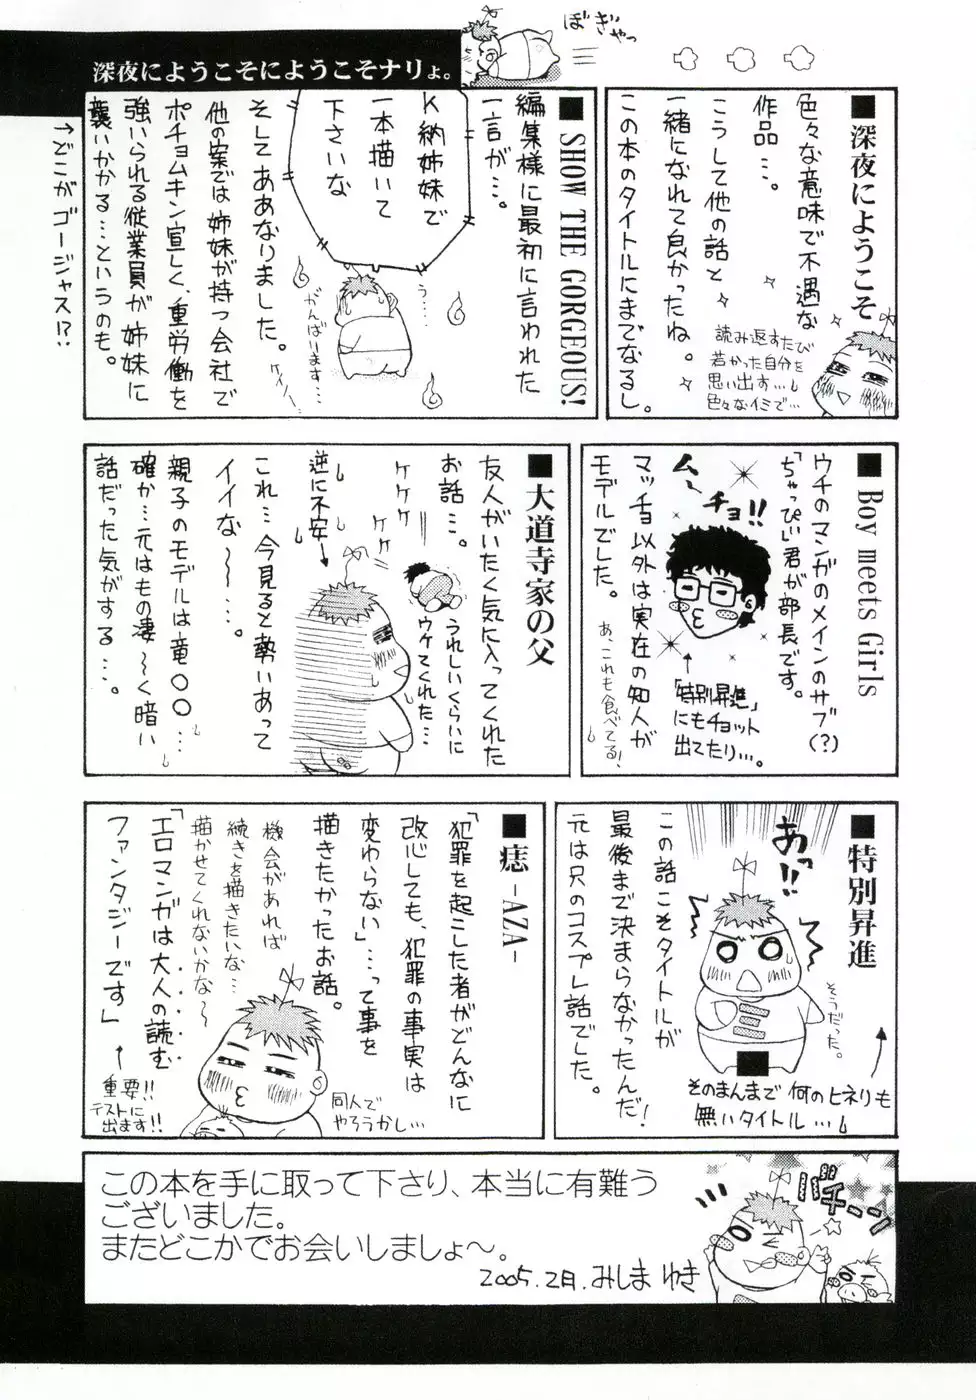 深夜にようこそにようこそナリょ。
ぼぎゃっ
■深夜にようこそ
色々な意味で不遇な
作品…。
こうして他の話と
一緒になれて良かったね。
この本のタイトルにまでなるし。
読み返すたび
若かった自分を
思い出す…
色々なイミで…
■SHOW THE GORGEOUS!
編集様に最初に言われた
一言が…。
K納姉妹で
一本描いて
下さいな
う…
がんばります…
そしてああなりました。
他の案では姉妹が持つ会社で
ポチョムキン宜しく、重労働を
強いられる従業員が姉妹に
襲いかかる…というのも。
→どこがゴージャス!?
■Boy meets Girls
ウチのマンガのメインのサブ(?)
「ちゃっぴぃ」君が部長です。
ム〜チョ!!
マッチョ以外は実在の知人が
モデルでした。
「特別昇進」
にもチョット
出てたり…。
あ、これも食べてる!
■大道寺家の父
友人がいたく気に入ってくれた
お話…。
うれしいくらいに
ウケてくれた…
ケケケケケ
逆に不安→
これ…今見ると勢いあって
イイな〜〜…。
親子のモデルは竜〇〇…
確か…元はもの凄〜く暗い
話だった気がする…。
■特別昇進
あっ!!
そうだった。
そのまんまで何のヒネリも
無いタイトル…
この話こそタイトルが
最後まで決まらなかったんだ!
元は只のコスプレ話でした。
■痣-AZA-
「犯罪を起こした者がどんなに
改心しても、犯罪の事実は
変わらない」…って事を
描きたかったお話。
機会があれば
続きを描きたいな…
描かせてくれないかな〜
同人で
やろうかし…
「エロマンガは大人の読む
ファンタジーです」
←重要!!
テストに
出ます!!
この本を手に取って下さり、本当に有難う
ございました。
またどこかでお会いしましょ〜。
2005.2月.みしまゆき
バチーンン